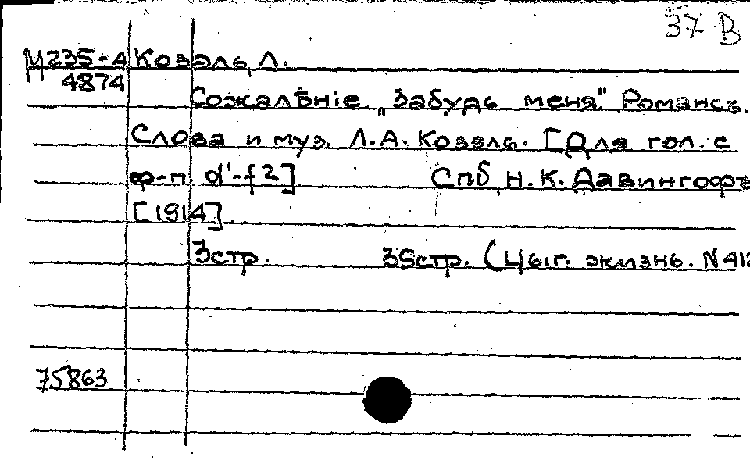 37 В
М235-4 Козэль, Л.
4874
Сожалѣніе „Забудь меня" Романсъ.
Слова и муз. Л.А. Козэль. [Для гол. с
ф-п. d'-f2] Спб Н.К. Давингофъ
[1914]
3стр. 35стр. (Цыг. жизнь. N412
75863